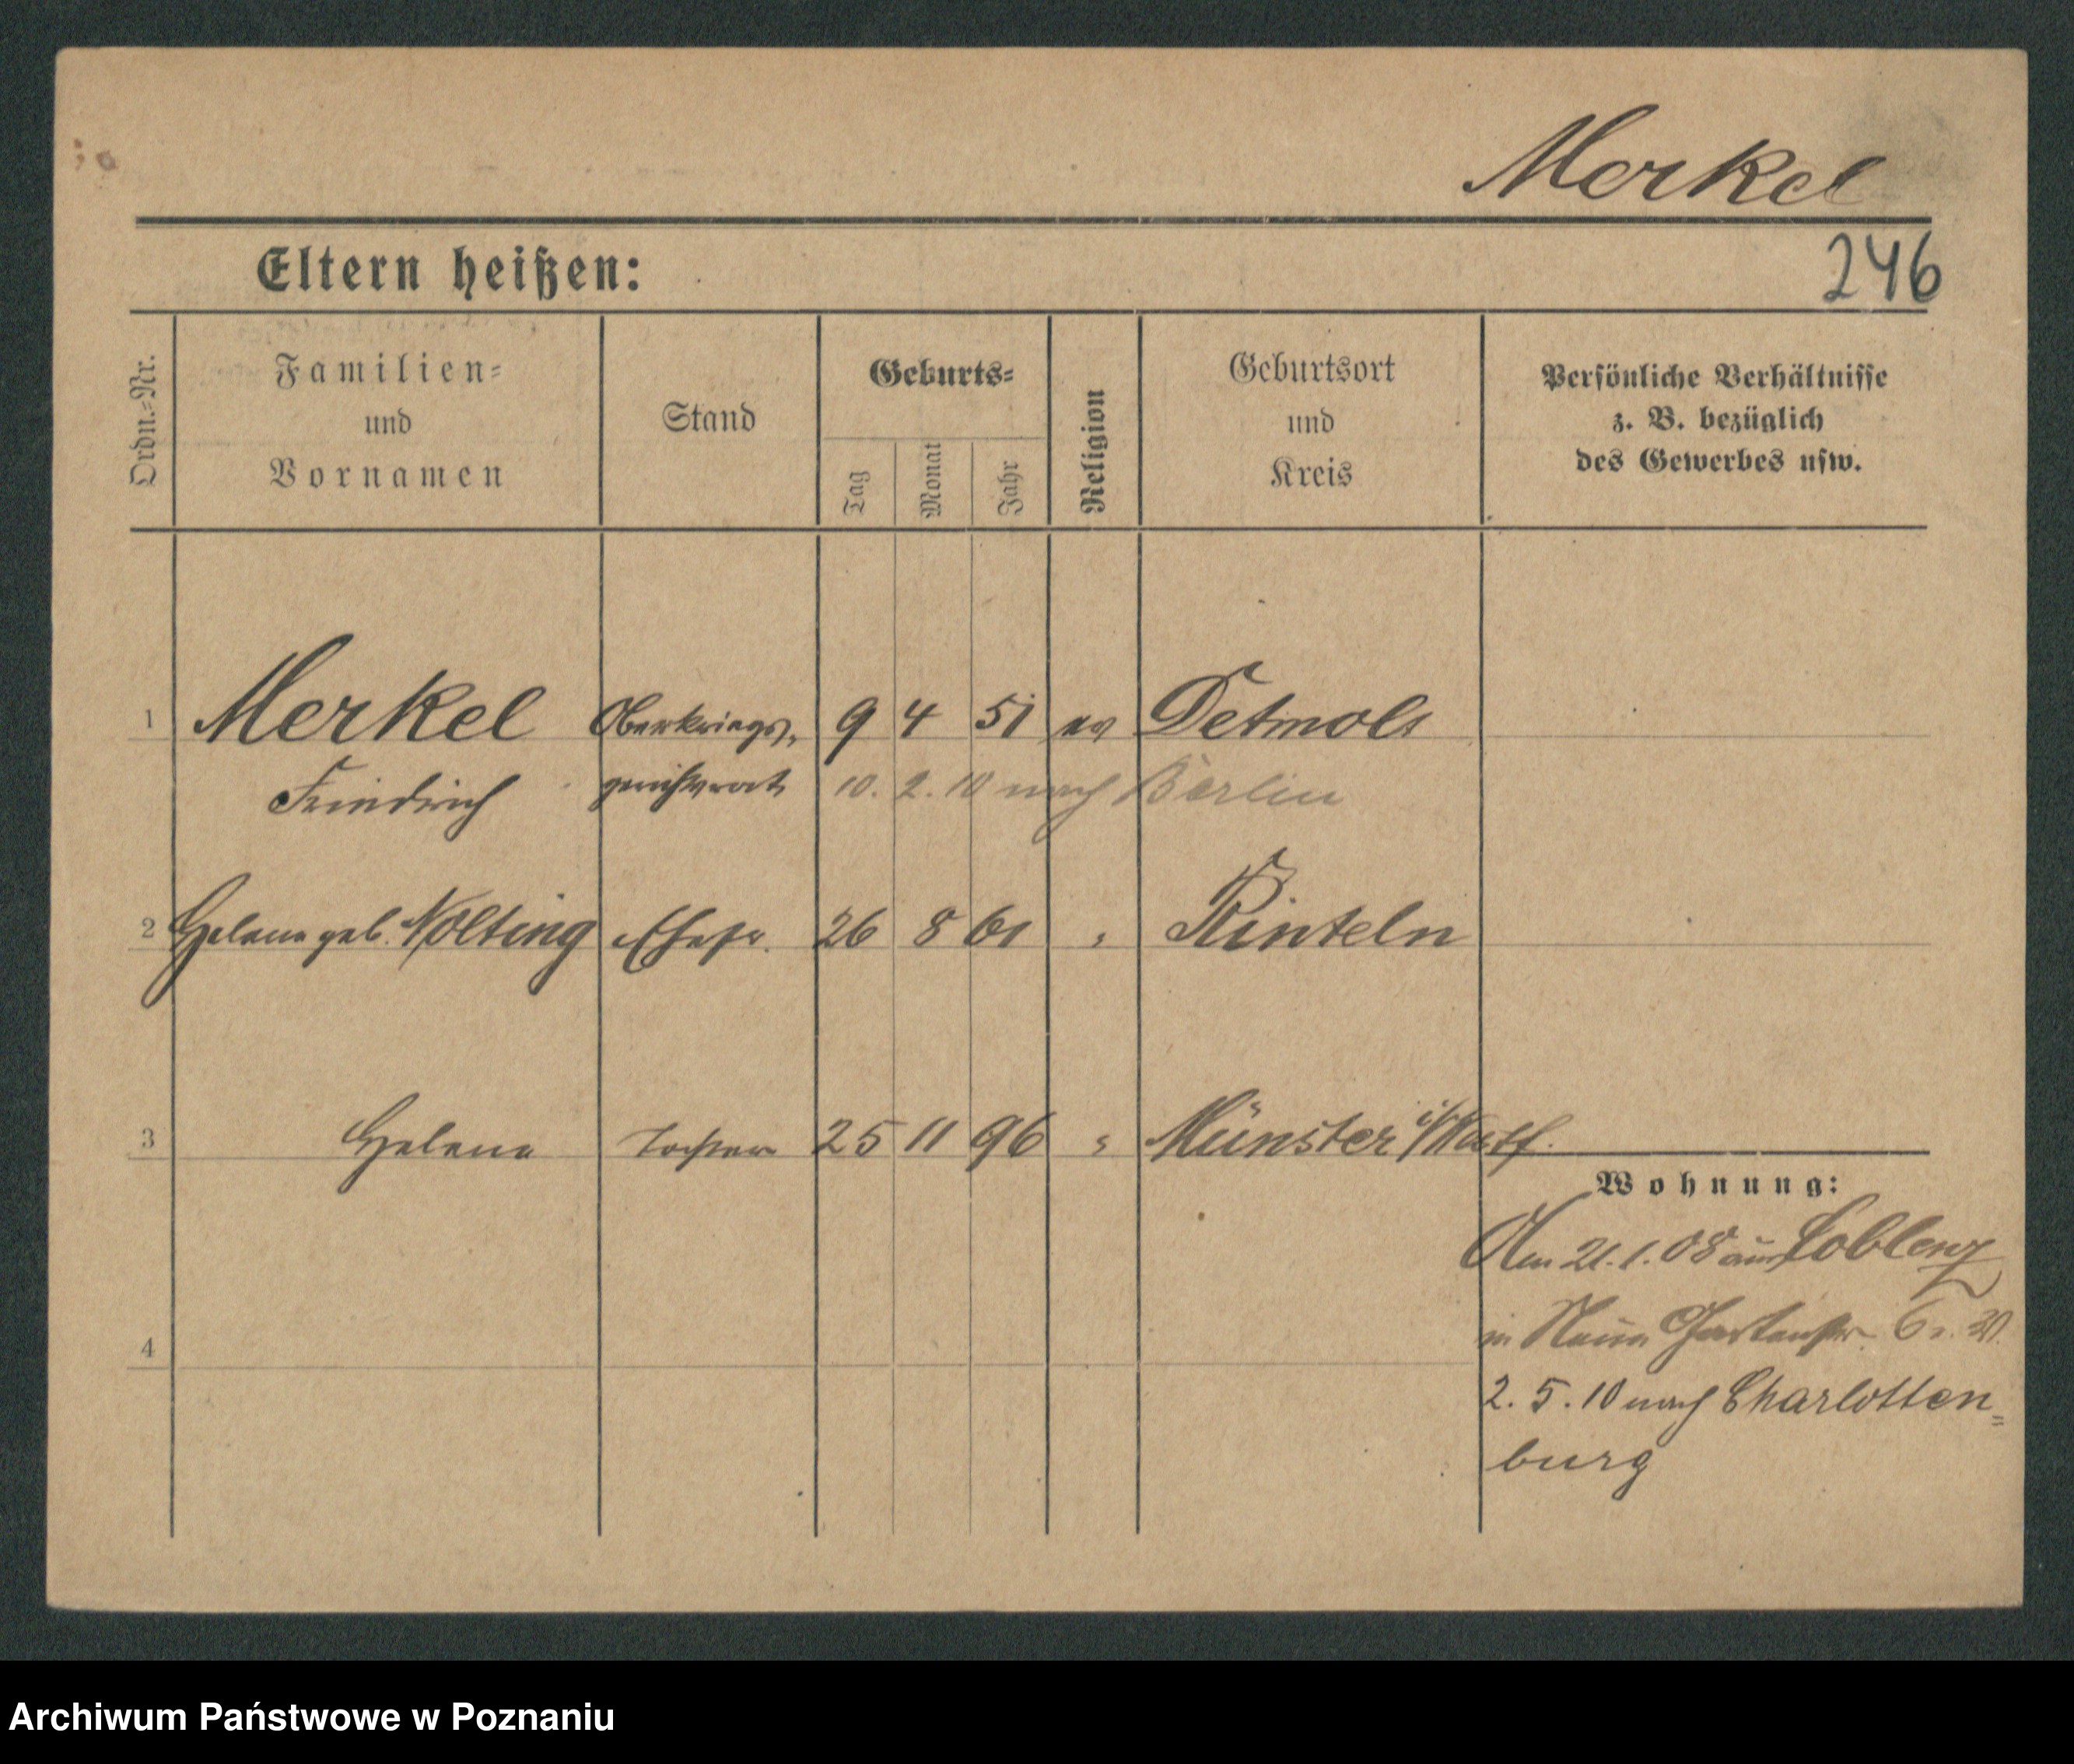 Merkel
246
Eltern heißen:
Ordn.-Nr.
Familien-
und
Vornamen
Stand
Geburts-
Tag
Monat
Jahr
Religion
Geburtsort
und
Kreis
Persönliche Verhältnisse
z. B. bezüglich
des Gewerbes usw.
1 Merkel Oberkriegs- 9 4 51 ev Detmold
Friedrich gerichtsrat 10. 2. 10 nach Berlin
2 Helene geb. Nolting Ehefr. 26 8 61 " Rinteln
3 Helene Tochter 25 11 96 " Münster i/Westf.
Wohnung:
Am 21.1.08 aus Coblenz
in Neue Gartenstr. 6
4
2. 5. 10 nach Charlotten=
burg
Archiwum Państwowe w Poznaniu